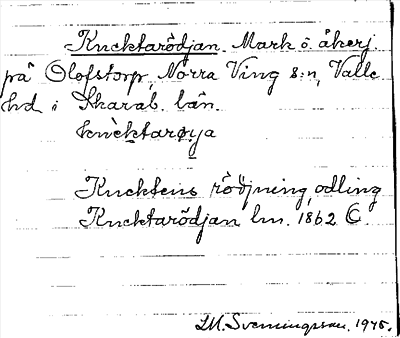 Knektarödjan. Mark o. åkerj.
på Olofstorp, Norra Ving s:n, Valle
hd i Skarab. län.
Knektens rö̂djning, odling
Knektarödjan lm. 1862 C.
LM. Svenningsson. 1975.